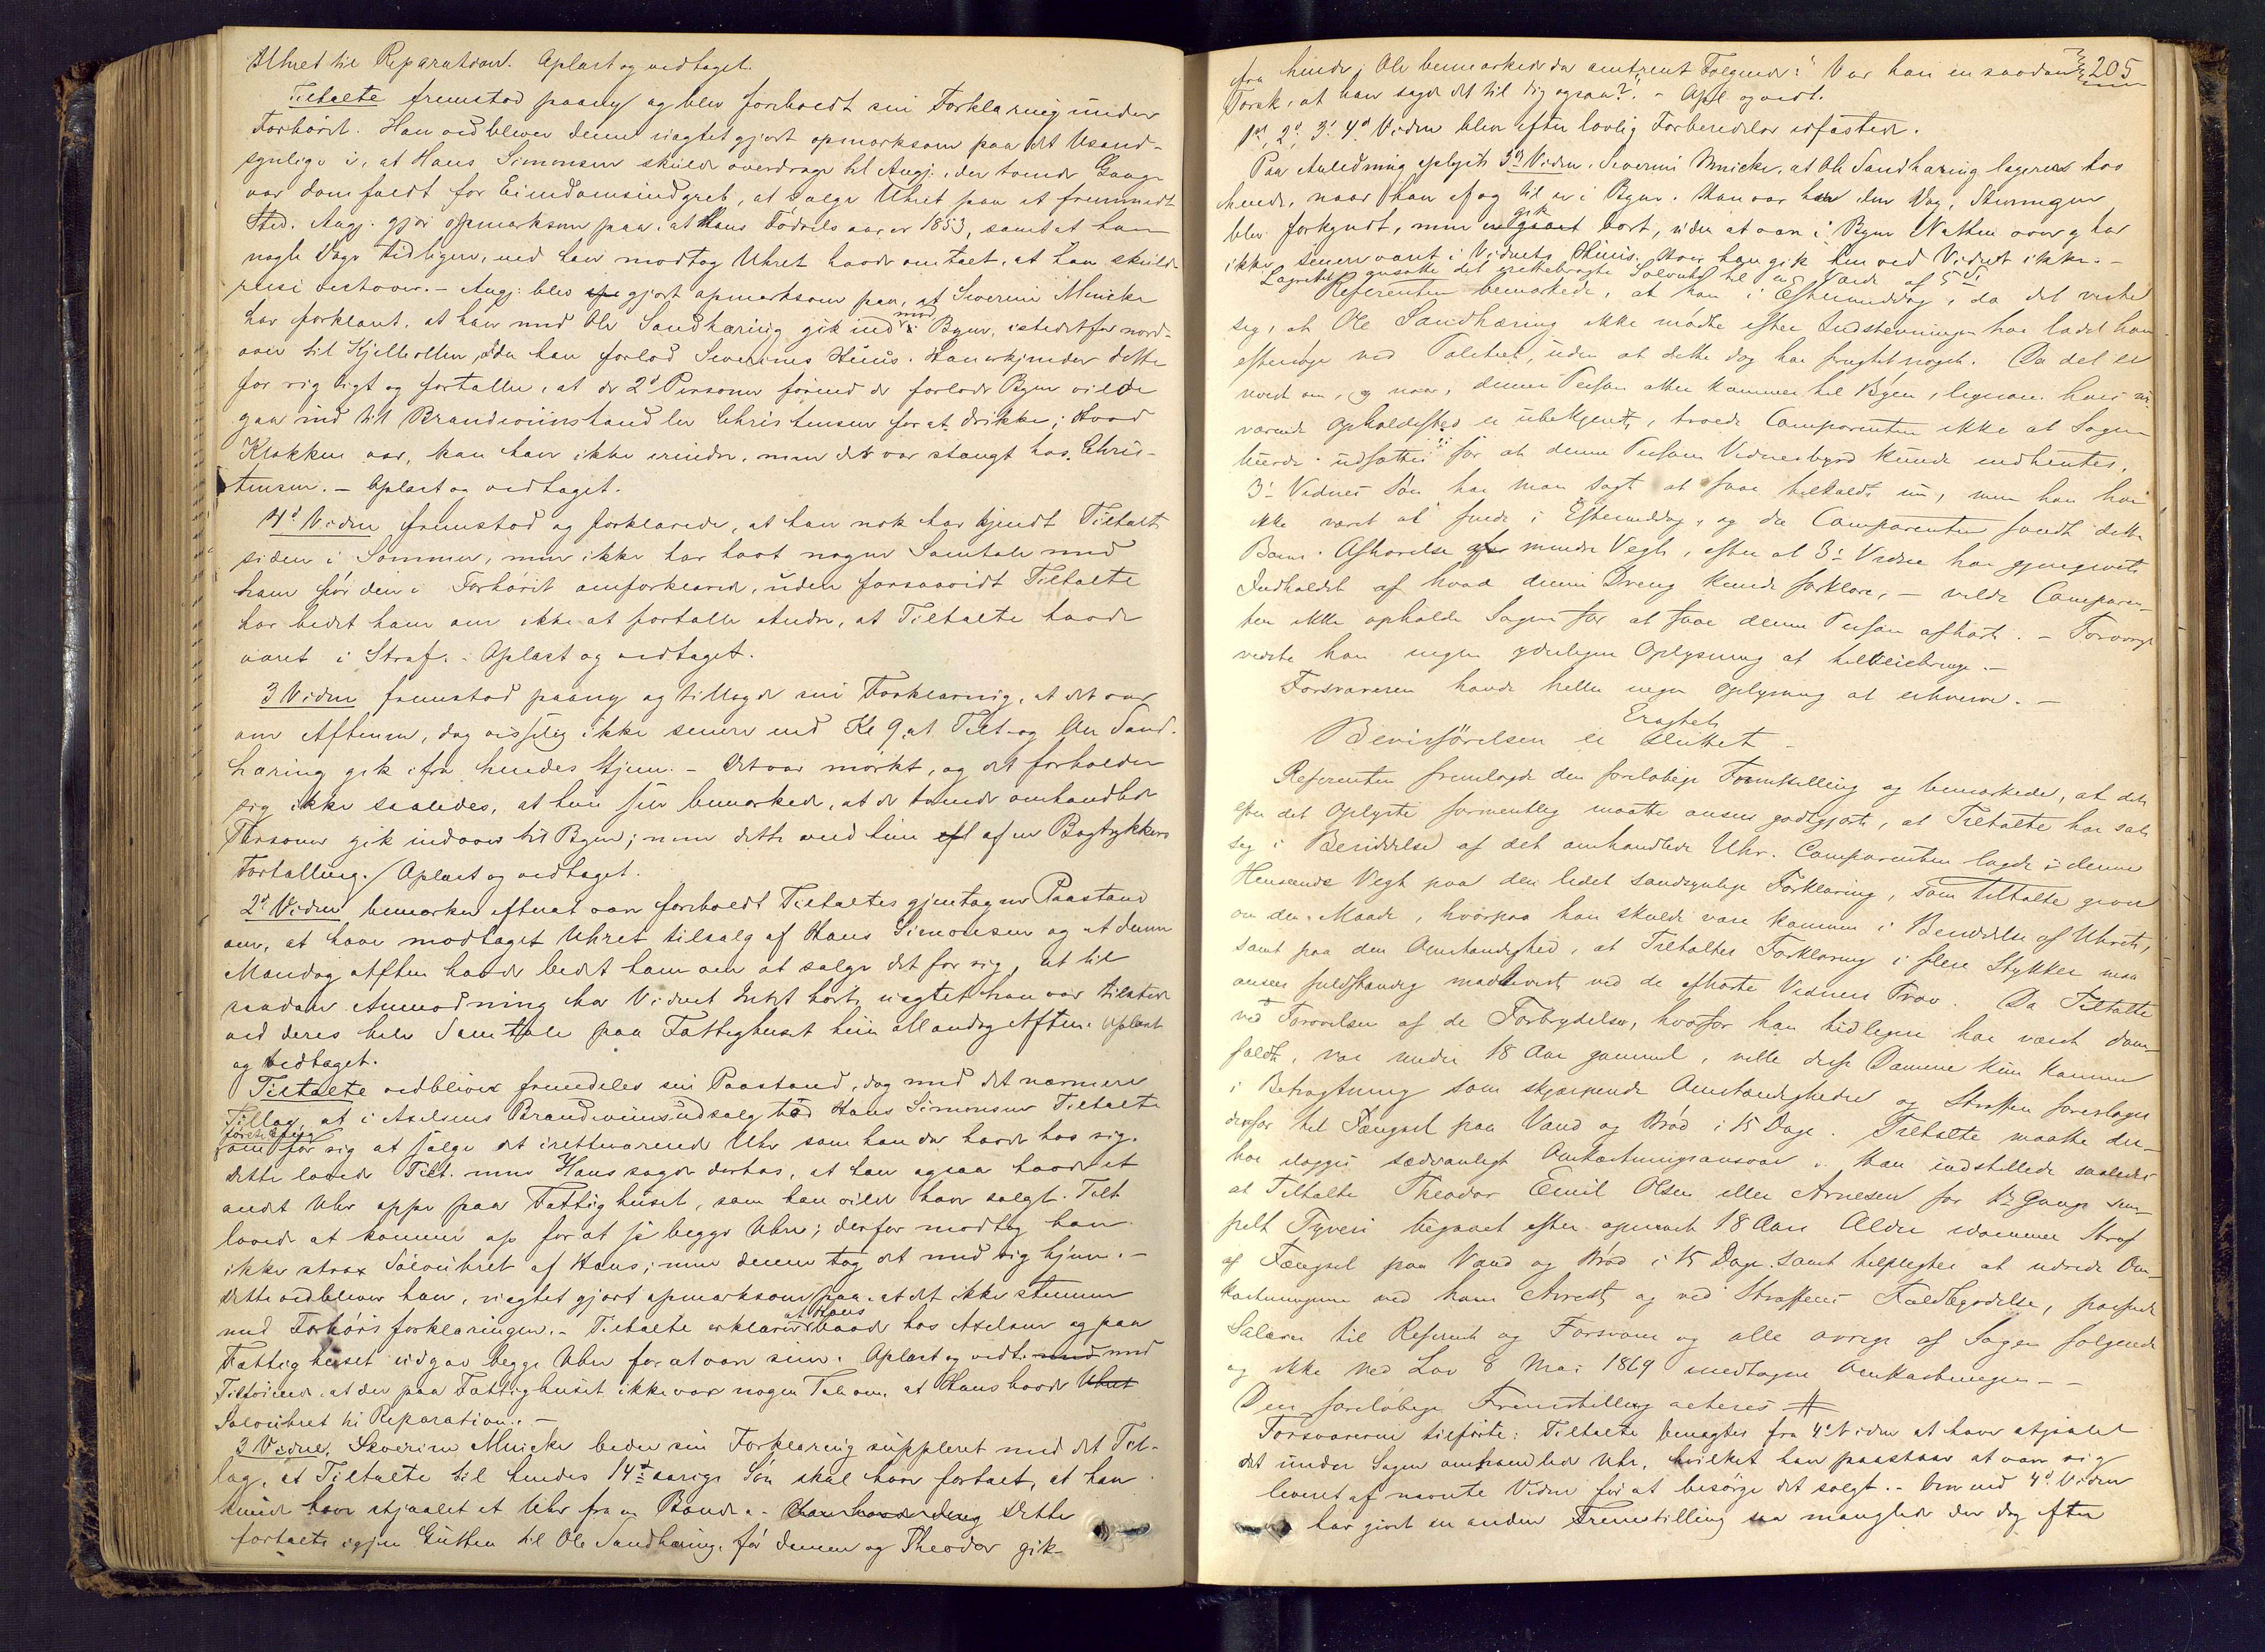 Uhret til Reparation. Oplæst og vedtaget.
Tiltalte fremstod paany og blev foreholdt sin Forklaring under
Forhöret. Han vedbliver denne uagtet gjort opmærksom paa det Usand-
synlige i, at Hans Simonsen skulde overdrage til Angj. der tvende Gange
var domfældt for Eiendomsindgreb, at sælge Uhret paa et fremmedt
Sted. Angj. gjör opmærksom paa, at Hans Födselsaar er 1853, samt at han
nogle Dage tidligere, end han modtog Uhret havde omtalt, at han skulde
reise vestover. – Angj. blev gjort opmærksom paa, at Severine Mnicke
har forklaret, at han med Ole Sandhæring gik ind mod Byen, istedetfor nord-
over til Kjelleollen, da han forlod Severines Huus. Han erkjender dette
for rigtigt og fortæller, at de 2de Personer förend de forlode Byen vilde
gaa ind til Brændeviinshandler Christensen for at drikke; Hvad
Klokken var, kan han ikke erindre, men det var stængt hos Chris-
tensen. – Oplæst og vedtaget.
4de Vidne fremstod og forklarede, at han nok har kjendt Tiltalte
siden i Sommer, men ikke har havt nogen Samtale med
ham för den i Forhöret omforklarede, uden forsaavidt Tiltalte
har bedet ham om ikke at fortælle Andre, at Tiltalte havde
været i Straf. – Oplæst og vedtaget.
3 Vidne fremstod paany og tillagde sin Forklaring, at det var
om Aftenen, dog visselig ikke senere end Kl 9, at Tilt. og Ole Sand-
hæring gik ifra hendes Hjem. – Det var mörkt, og det forholder
sig ikke saaledes, at hun selv bemærkede, at de tvende omhandlede
Personer gik indover til Byen; men dette ved hun af en Bogtrykkers
Fortælling. Oplæst og vedtaget.
2det Vidne bemærker efterat være foreholdt Tiltaltes gjentagne Paastand
om, at have modtaget Uhret tilsalg af Hans Simonsen og at denne
Mandag Aften havde bedet ham om at sælge det for sig, at til
saadan Anmodning har Vidnet Intet hört, uagtet han var tilstede
ved deres hele Samtale paa Fattighuset hiin Mandag Aften. Oplæst
og vedtaget.
Tiltalte vedbliver fremdeles sin Paastand, dog med det nærmere
Tillæg, at i Axelsens Brændeviinsudsalg bad Hans Simonsen Tiltalte
om for sig at sælge det iretteværende Uhr som han da havde hos sig.
Dette lovede Tilt. men Hans sagde derhos, at han ogsaa havde et
andet Uhr oppe paa Fattighuset, som han vilde have solgt. Tilt.
lovede at komme op for at se begge Uhre; derfor modtog han
ikke strax Sölvuhret af Hans; men denne tog det med sig hjem. –
Dette vedbliver han, uagtet gjort opmærksom paa, at det ikke stemmer
med Forhörsforklaringen. – Tiltalte erklærer at Hans baade hos Axelsen og paa
Fattighuset udgav begge Uhre for at være sine. Oplæst og vedt. med
Tilföiende, at der paa Fattighuset ikke var nogen Tale om, at Hans havde Uhret
Sölvuhret til Reparation. –
3 Vidne, Severine Mnicke beder sin Forklaring suppleret med det Til-
læg, at Tiltalte til hendes 14de aarige Sön skal have fortalt, at han
kunde have stjaalet et Uhr fra en Bonde. Dette
fortalte igjen Gutten til Ole Sandhæring, för denne og Theodor gik
205
fra hende; Ole bemærkede da omtrent Fölgende: "Var han en saadan
Torsk, at han sagde det til dig ogsaa?" – Opl. og vedt.
1ste, 2det, 3die, 4de Vidne blev efter lovlig Forberedelse edfæstede.
Paa Anledning oplyste 3die Vidne, Severine Mnicke, at Ole Sandhæring logerer hos
hende, naar han af og til er i Byen. Han var her den Dag, Stevningen
blev forkyndt, men gik bort, uden at være i Byen Natten over og har
ikke senere været i Vidnets Huus. Hvor han gik hen ved Vidnet ikke. –
Lagretten ansatte det irettebragte Sölvuhr til en Værdi af 5 Sp.
Referenten bemærkede, at han i Eftermiddag, da det viste
sig, at Ole Sandhæring ikke mödte efter Indstevningen har ladet ham
eftersöge ved Politiet, uden at dette dog har frugtet noget. Da det er
uvist om, og naar, denne Person atter kommer til Byen, ligesom hans nu-
værende Opholdssted er ubekjendt, troede Comparenten ikke at Sagen
burde udsættes for at denne Persons Vidnesbyrd kunde indhentes.
3die Vidnes Sön har man sögt at faae tilkaldt nu, men han har
ikke været at finde i Eftermiddag, og da Comparenten fandt dette
Barns Afhörelse af mindre Vegt, efter at 3die Vidne har gjengivet
Indholdet af hvad denne Dreng kunde forklare, – vilde Comparen-
ten ikke opholde Sagen for at faae denne Person afhört. – Forövrigt
vidste han ingen yderligere Oplysning at tilveiebringe. –
Forsvareren havde heller ingen Oplysning at erhverve. –
Eragtet
Bevisförelsen er sluttet –
Referenten fremlagde den forelöbige Fremstilling og bemærkede, at det
efter det Oplyste formentlig maatte ansees godtgjort, at Tiltalte har sat
sig i Besiddelse af det omhandlede Uhr. Comparenten lagde i denne
Henseende Vegt paa den lidet sandsynlige Forklaring, som Tiltalte giver
om den Maade, hvorpaa han skulde være kommen i Besiddelse af Uhret,
samt paa den Omstændighed, at Tiltaltes Forklaring i flere Stykker maa
ansees fuldstændig modbevist ved de afhörte Vidners Prov. Da Tiltalte
ved Forövelsen af de Forbrydelser, hvorfor han tidligere har været dom-
fældt, var under 18 Aar gammel, ville disse Domme kun komme
i Betragtning som skjærpende Omstændigheder og Straffen foreslaaes
derfor til Fængsel paa Vand og Bröd i 15 Dage. Tiltalte maatte der-
hos ilægges sædvanligt Omkostningsansvar. Han indstillede saaledes
at Tiltalte Theodor Emil Olsen eller Arnesen for 1ste Gangs sim-
pelt Tyveri begaaet efter opnaaet 18 Aars Alder idömmes Straf
af Fængsel paa Vand og Bröd i 15 Dage samt tilpligtes at udrede Om-
kostningerne ved hans Arrest og ved Straffens Fuldbyrdelse, passende
Salarer til Referent og Forsvarer og alle övrige af Sagen fölgende
og ikke ved Lov 8 Mai 1869 undtagne Omkostninger. –
Den forelöbige Fremstilling acteres #
Forsvareren tilförte: Tiltalte benægter fra 4de Vidne at have stjaalet
det under Sagen omhandlede Uhr, hvilket han paastaar at være sig
leveret af nævnte Vidne for at besörge det solgt. – Om end 4de Vidne
har givet en anden Fremstilling saa mangler der dog efter